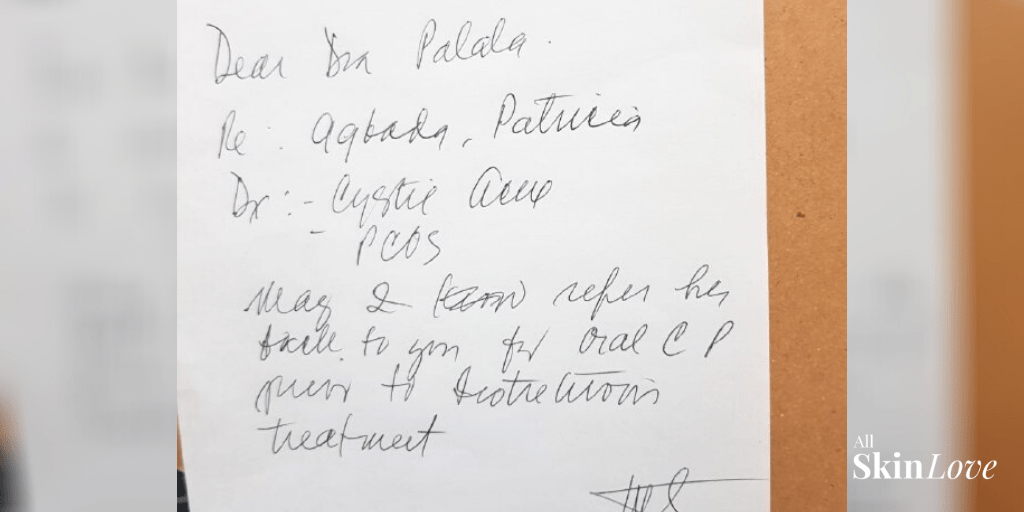 Dear Dra Palala.
Re: Agbada, Patricia
Dx:- Cystic Acne
- PCOS
May I refer her
back to you for Oral CP
prior to Isotretinoin
treatment
All
SkinLove